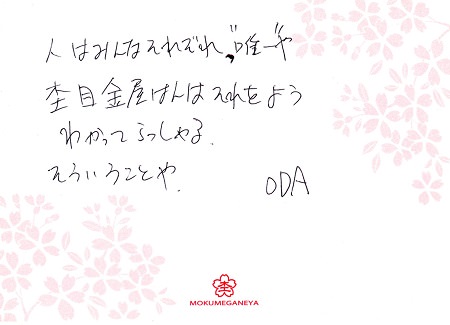 人はみんなそれぞれ“唯一”や
杢目金屋はんはそれをよう
わかってらっしゃる.
そういうことや.
ODA
杢
MOKUMEGANEYA